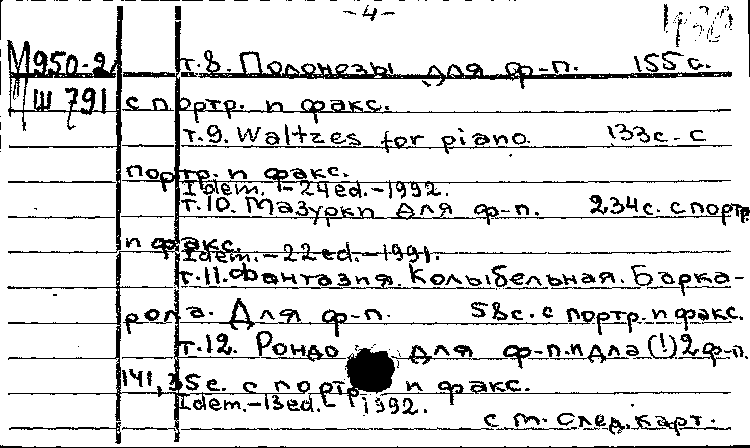 -4-
М950-2/ т.8. Полонезы для ф-п. 155 с.
Ш 791 с портр. и факс.
т.9. Waltzes for piano 133с. с
портр. и факс.
Idem. - 24 ed. - 1992.
т.10. Мазурки для ф-п. 234с. с портр
и факс.
Idem. - 22 ed. - 1991.
т.11. Фантазия. Колыбельная. Барка-
рола. Для ф-п. 58с. с портр. и факс.
т.12. Рондо для ф-п. и дла (!) 2 ф-п.
141, 35с. с портр. и факс.
Idem. - 13 ed. - 1992.
см. след. карт.